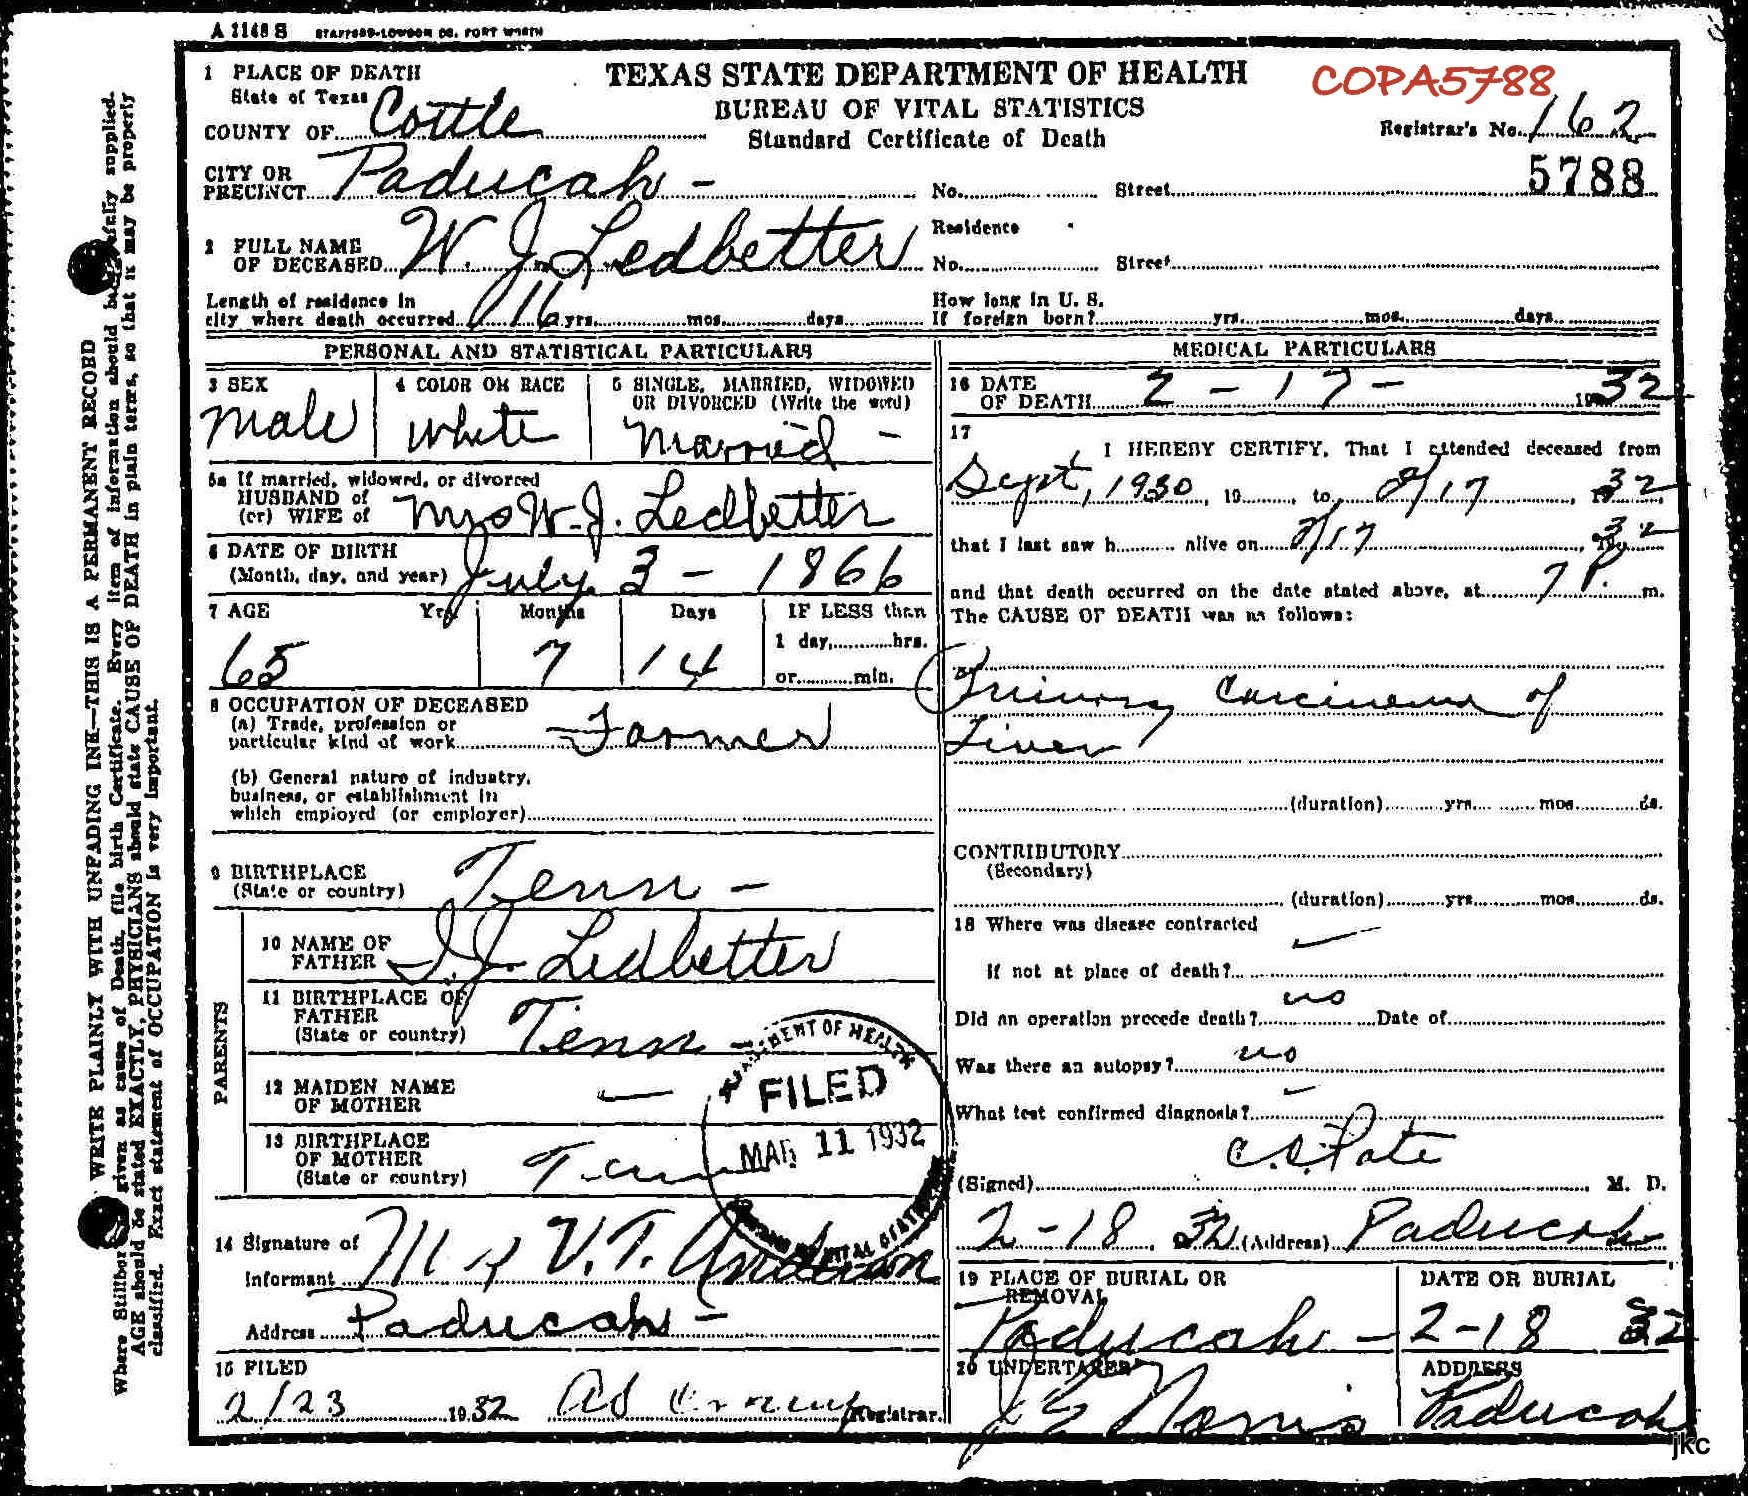 A 1148 S STAFFORD-LOWDON CO. FORT WORTH
1 PLACE OF DEATH
State of Texas
COUNTY OF Cottle
TEXAS STATE DEPARTMENT OF HEALTH
BUREAU OF VITAL STATISTICS
Standard Certificate of Death
COPA5788
Registrar's No. 162
5788
CITY OR
PRECINCT Paducah - No. Street
2 FULL NAME
OF DECEASED W. J. Ledbetter
Residence
No. Street
Length of residence in
city where death occurred 16 yrs. mos. days
How long in U. S.
If foreign born? yrs. mos. days
PERSONAL AND STATISTICAL PARTICULARS
3 SEX
male
4 COLOR OR RACE
white
5 SINGLE, MARRIED, WIDOWED
OR DIVORCED (Write the word)
Married -
5a If married, widowed, or divorced
HUSBAND of
(or) WIFE of Mrs W. J. Ledbetter
6 DATE OF BIRTH
(Month, day, and year) July 3 - 1866
7 AGE Yrs. Months Days IF LESS than
65 7 14 1 day, hrs.
or min.
8 OCCUPATION OF DECEASED
(a) Trade, profession or
particular kind of work Farmer
(b) General nature of industry,
business, or establishment in
which employed (or employer)
9 BIRTHPLACE
(State or country) Tenn -
PARENTS
10 NAME OF
FATHER J. Ledbetter
11 BIRTHPLACE OF
FATHER
(State or country) Tenn -
12 MAIDEN NAME
OF MOTHER —
13 BIRTHPLACE
OF MOTHER
(State or country) Tenn
DEPARTMENT OF HEALTH
FILED
MAR 11 1932
14 Signature of
Informant V. T.
Address Paducah -
15 FILED
2/23 1932 Registrar.
MEDICAL PARTICULARS
16 DATE
OF DEATH 2 - 17 - 1932
17
I HEREBY CERTIFY, That I attended deceased from
Sept, 1930, 19 , to 2/17, 1932
that I last saw h alive on 2/17, 1932
and that death occurred on the date stated above, at 7 P. m.
The CAUSE OF DEATH was as follows:
Primary Carcinoma of
Liver
(duration) yrs. mos. ds.
CONTRIBUTORY
(Secondary)
(duration) yrs. mos. ds.
18 Where was disease contracted
if not at place of death?
Did an operation precede death? no Date of
Was there an autopsy? no
What test confirmed diagnosis? -
(Signed) C. C. Pate M. D.
2-18, 32 (Address) Paducah
19 PLACE OF BURIAL OR
REMOVAL
Paducah -
DATE OR BURIAL
2-18 32
20 UNDERTAKER
J E Norris
ADDRESS
Paducah
jkc
WRITE PLAINLY WITH UNFADING INK—THIS IS A PERMANENT RECORD
Every item of information should be carefully supplied.
AGE should be stated EXACTLY, PHYSICIANS should state CAUSE OF DEATH in plain terms, so that it may be properly
classified. Exact statement of OCCUPATION is very important.